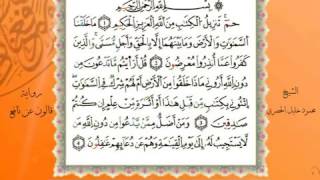 بِسْمِ اللَّهِ الرَّحْمَٰنِ الرَّحِيمِ
حمٓ تَنزِيلُ الْكِتَٰبِ مِنَ اللَّهِ الْعَزِيزِ الْحَكِيمِ ١ مَا خَلَقْنَا
السَّمَٰوَٰتِ وَالْأَرْضَ وَمَا بَيْنَهُمَا إِلَّا بِالْحَقِّ وَأَجَلٍ مُّسَمًّى وَالَّذِينَ
كَفَرُوا عَمَّا أُنذِرُوا مُعْرِضُونَ ٢ قُلْ أَرَٰيْتُم مَّا تَدْعُونَ مِن
دُونِ اللَّهِ أَرُونِي مَاذَا خَلَقُوا مِنَ الْأَرْضِ أَمْ لَهُمْ شِرْكٌ فِي السَّمَٰوَٰتِ
ائْتُونِي بِكِتَٰبٍ مِّن قَبْلِ هَٰذَا أَوْ أَثَٰرَةٍ مِّنْ عِلْمٍ إِن كُنتُمْ
صَٰدِقِينَ ٣ وَمَنْ أَضَلُّ مِمَّن يَدْعُوا مِن دُونِ اللَّهِ مَن
لَّا يَسْتَجِيبُ لَهُ إِلَىٰ يَوْمِ الْقِيَٰمَةِ وَهُمْ عَن دُعَآئِهِمْ غَٰفِلُونَ ٤
الشيخ
محمود خليل الحصري
رواية
قالون عن نافع